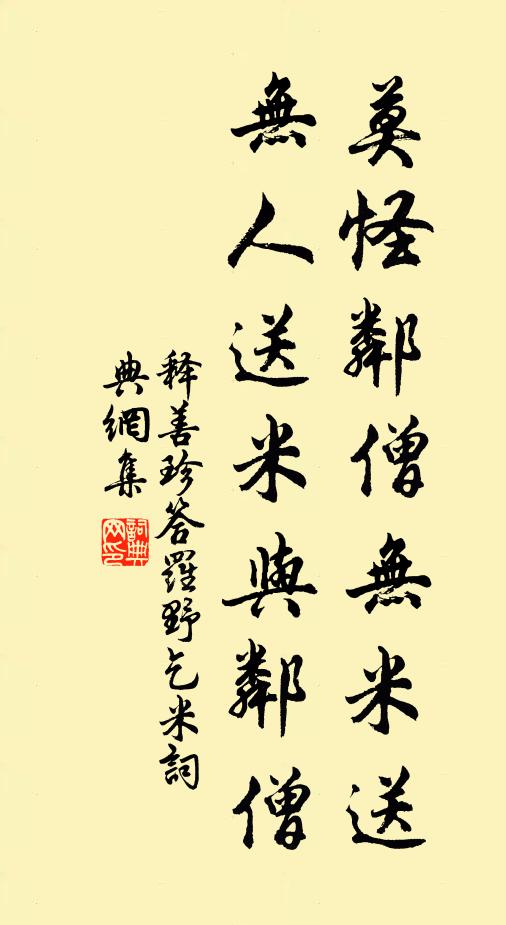 莫怪鄰僧無米送
無人送米與鄰僧
释善珍答羅野乞米詞
典網集
詞典網印